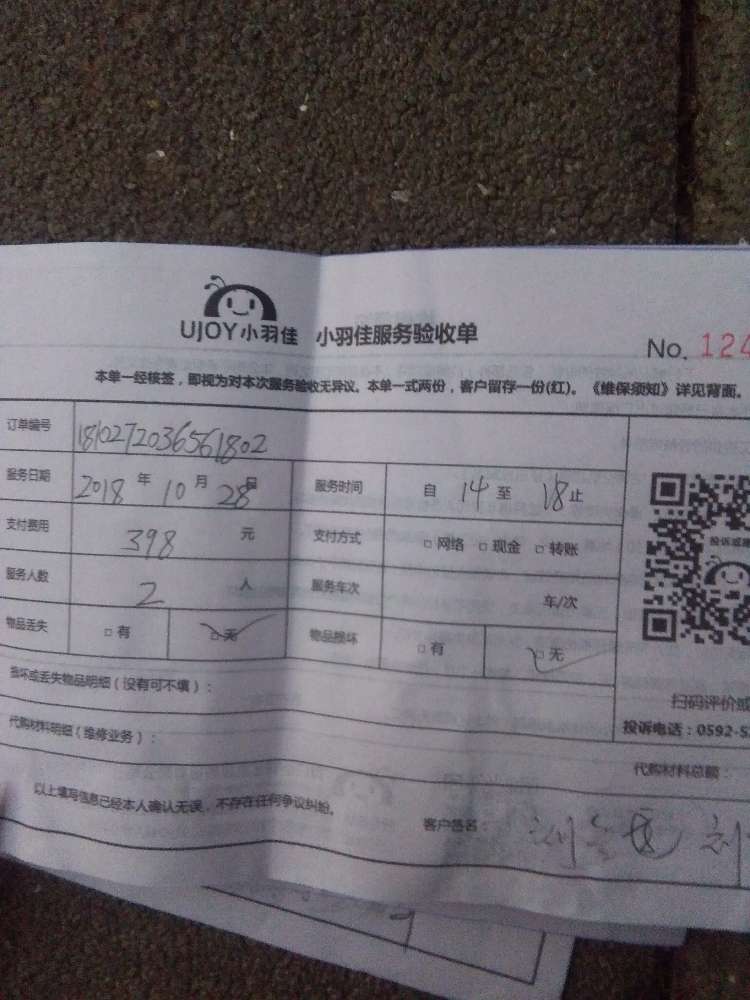 UJOY小羽佳 小羽佳服务验收单
No. 124
本单一经核签，即视为对本次服务验收无异议。本单一式两份，客户留存一份(红)。《维保须知》详见背面。
订单编号 1810272036561802
服务日期 2018 年 10 月 28 日 服务时间 自 14 至 18 止
支付费用 398 元 支付方式 □ 网络 □ 现金 □ 转账
服务人数 2 人 服务车次 车/次
物品丢失 □ 有 □ 无 物品损坏 □ 有 □ 无
投诉或
损坏或丢失物品明细（没有可不填）：
扫码评价或
代购材料明细（维修业务）：
投诉电话：0592-5
代购材料总额：
以上填写信息已经本人确认无误，不存在任何争议纠纷。
客户签名：